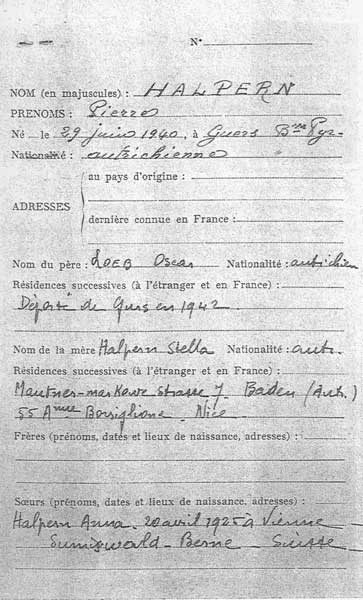 N°
NOM (en majuscules) : HALPERN
PRENOMS : Pierre
Né le 29 juin 1940, à Guers Bses Pyr.
Nationalité : autrichienne
au pays d'origine :
ADRESSES
dernière connue en France :
Nom du père : LOEB Oscar Nationalité : autrichien
Résidences successives (à l'étranger et en France) :
Déporté de Gurs en 1942
Nom de la mère Halpern Stella Nationalité : autr.
Résidences successives (à l'étranger et en France) :
strasse 7 Baden (Autr.)
55 Nice
Frères (prénoms, dates et lieux de naissance, adresses) :
Sœurs (prénoms, dates et lieux de naissance, adresses) :
Halpern Anna. 20 avril 1925 à Vienne
Sumiswald - Berne - Suisse